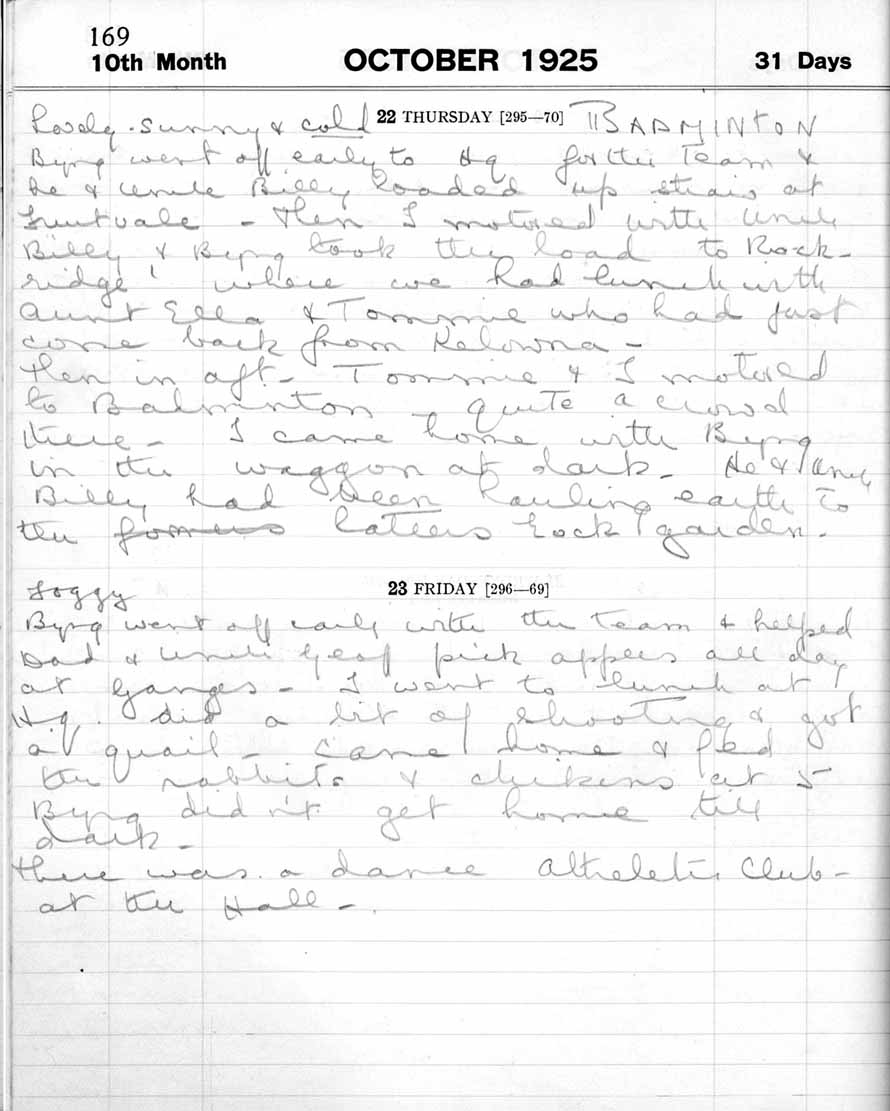 169
10th Month OCTOBER 1925 31 Days
22 THURSDAY [295—70]
Lovely. sunny & cold BADMINTON
Byng went off early to Hq for the Team &
he & Uncle Billy loaded up straw at
Fruitvale - then I motored with Uncle
Billy & Byng took the load to Rock-
ridge' where we had lunch with
Aunt Ella & Tommie who had just
come back from Kelowna -
then in aft- Tommie & I motored
to Badminton - quite a crowd
there - I came home with Byng
in the waggon at dark - He & Uncle
Billy had been hauling earth to
the formers latters rock garden.
23 FRIDAY [296—69]
Foggy
Byng went off early with the team & helped
Dad & Uncle Geof pick apples all day
at Ganges - I went to lunch at
Hq. did a bit of shooting & got
a quail - came home & fed
the rabbits & chikens at 5
Byng didn't get home till
dark -
there was a dance Altheletic Club -
at the Hall - .